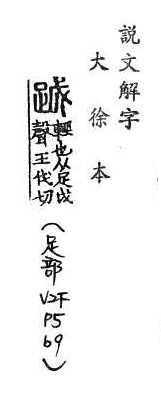 說文解字
大徐本
䟠輕也从足戉
聲王伐切
(足部
V2下
P5
69)